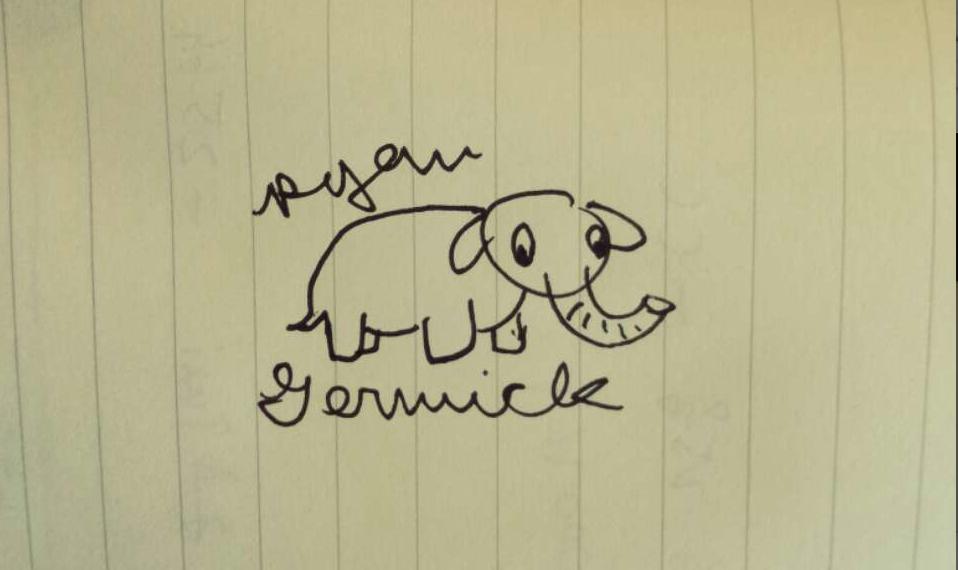 Ryan
Germick